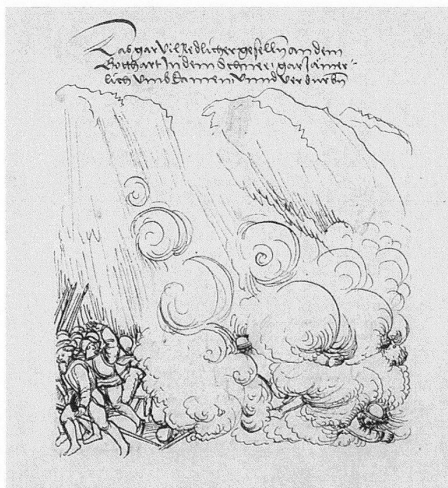 Das gar vil Redlicher gesellen an dem
Gotthart In dem Schnee, gar Jamer-
lich umb kamen unnd verdurbn